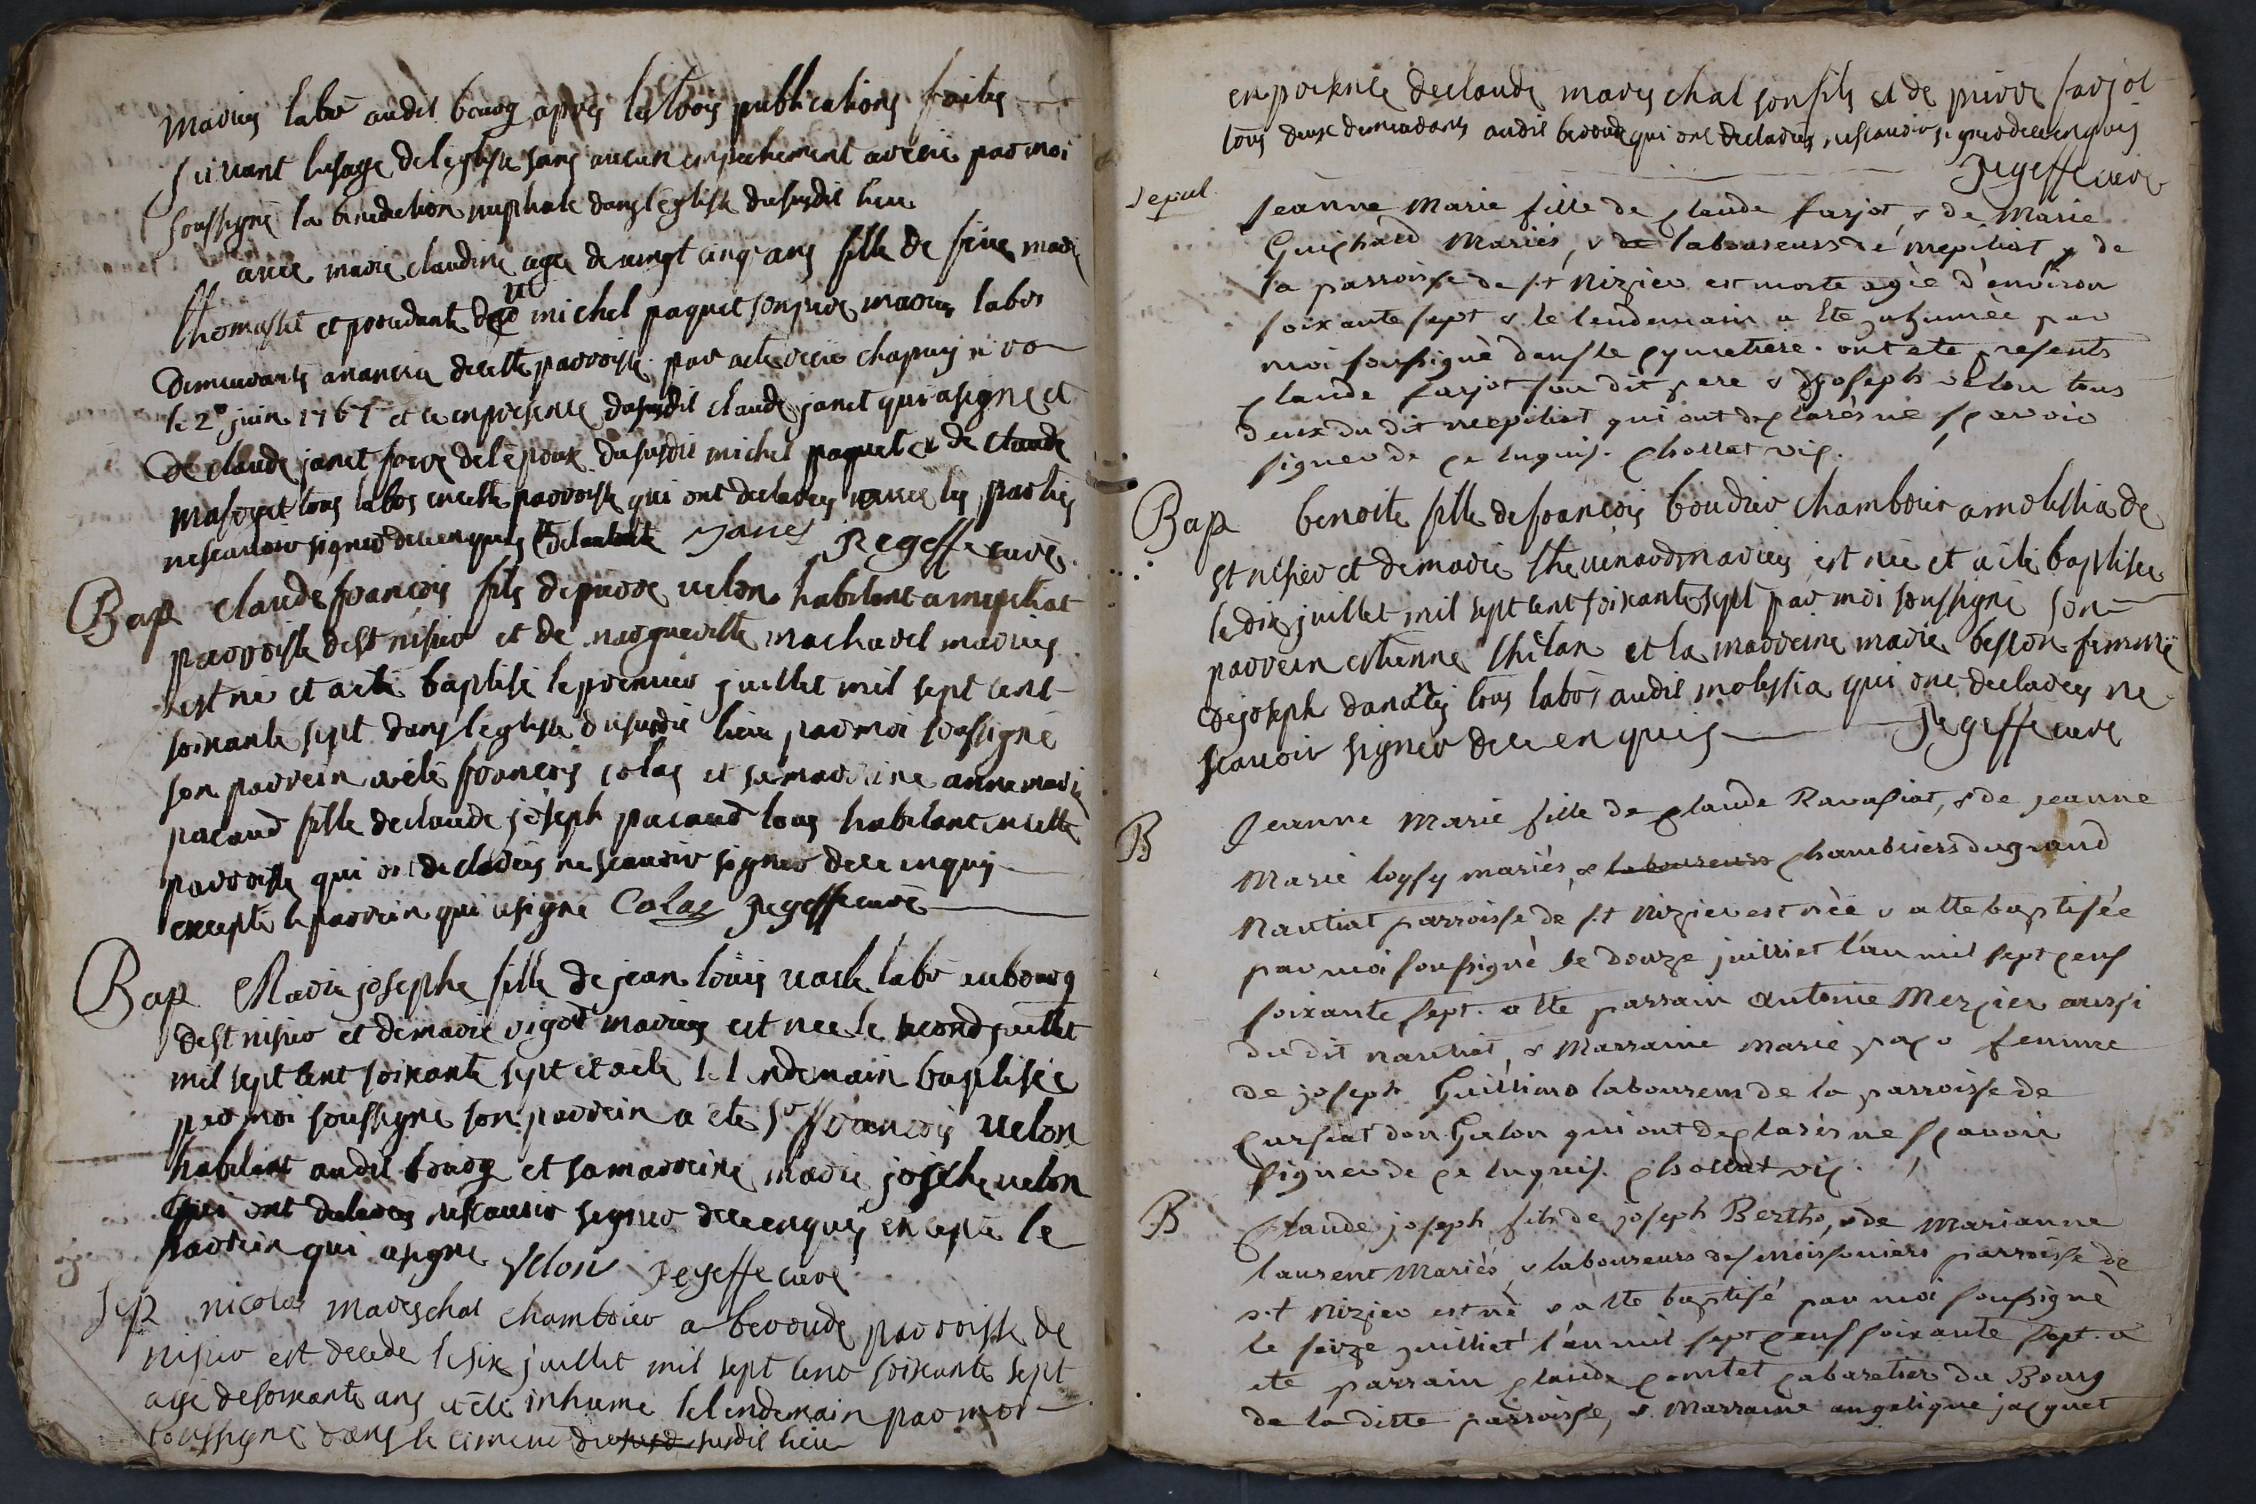 mariés labr audit bourg après les trois publications faites
suivant lusage de leglise sans aucun empechement a recu par moi
soussigné la benediction nuptiale dans leglise dususdit lieu
avec marie claudine agee de vingt cinq ans fille de feue marie
thomasset et procedante de michel paquet son pere mariés labrs
demeurants a de cette parroisse par acte recu chapuy n ro
le 2e juin 1767 et ce en presence dususdit claude janet qui a signé et
de claude janet frere de lepoux dususdit michel paquet et de claude
tous labrs en cette parroisse qui ont declarés avec les parties
ne scauoir signer de ce enquis janet Jegeffe curé
Bap claude francois fils de pierre uelon habitant a mepiliat
parroisse de St nisier et de margueritte machurel mariés
est né et a eté baptisé le premier juillet mil sept cent
soixante sept dans leglise dususdit lieu par moi soussigné
son parrein a eté francois colas et sa marreine anne marie
pacaud fille de claude joseph pacaud tous habitant en cette
parroisse qui ont declarés ne scauoir signer de ce enquis
excepté le parrein qui a signé Colas Jegeffe curé
Bap Marie josephe fille de jean loüis uacle labr au bourg
de St nisier et de marie vigot mariés est nee le second juillet
mil sept cent soixante sept et a eté le lendemain baptisée
par moi soussigné son parrein a eté Sr francois uelon
habitant audit bourg et sa marreine marie josephe uelon
qui ont declarés ne scauoir signer de ce enquis excepté le
parrein qui a signé Velon Jegeffe curé
Sep nicolas mareschal chambrier a beroude parroisse de
nisier est decedé le six juillet mil sept cent soixante sept
agé de soixante ans a eté inhumé le lendemain par moi
soussigné dans le cimetiere susdit lieu
en presence de claude mareschal son fils et de pierre farjot
tous deux demeurants audit beroude qui ont declarés ne scauoir signer de ce enquis
Jegeffe curé
Sepul
jeanne Marie fille de claude farjot & de Marie
Guichard Mariés, & laboureurs de mepiliat, de
la parroisse de s.t Nizier est morte agée d'environ
soixante sept & le lendemain a ete inhumée par
moi soussigné dans le cymetiere. ont ete presents
claude farjot son dit pere & joseph velon tous
deux du dit mepiliat qui ont declarés ne sçavoir
signer de ce enquis. chollat vic.
Bap benoite fille de francois boudier chambrier a molissia de
st nisier et de marie theuenard mariés est née et a eté baptisée
le dix juillet mil sept cent soixante sept par moi soussigné son
parrein etienne et la marreine marie besson femme
de joseph tous labrs audit molissia qui ont declarés ne
scauoir signer de ce enquis Jegeffe curé
B Jeanne Marie fille de claude Ravassiat, & de jeanne
Marie loysy mariés, & laboureurs chambriers du grand
Nantiat parroisse de s.t Nizier est née & a ete baptisée
par moi soussigné le douze juilliet l'an mil sept cens
soixante sept. a ete parrain antoine Mercier aussi
du dit nantiat, & Marraine marie femme
de joseph Guilliard laboureur de la parroisse de
curciat dongalon qui ont declarés ne sçavoir
signer de ce enquis. chollat vic.
B Claude joseph fils de joseph Bertho, & de Marianne
laurent Mariés & laboureurs des moissoniers parroisse de
s.t Nizier est né & a ete baptisé par moi soussigné
le seize juilliet l'an mil sept cens soixante sept. a
ete parrain claude comtet cabaretier du Bourg
de la ditte parroisse, & Marraine angelique jacquet